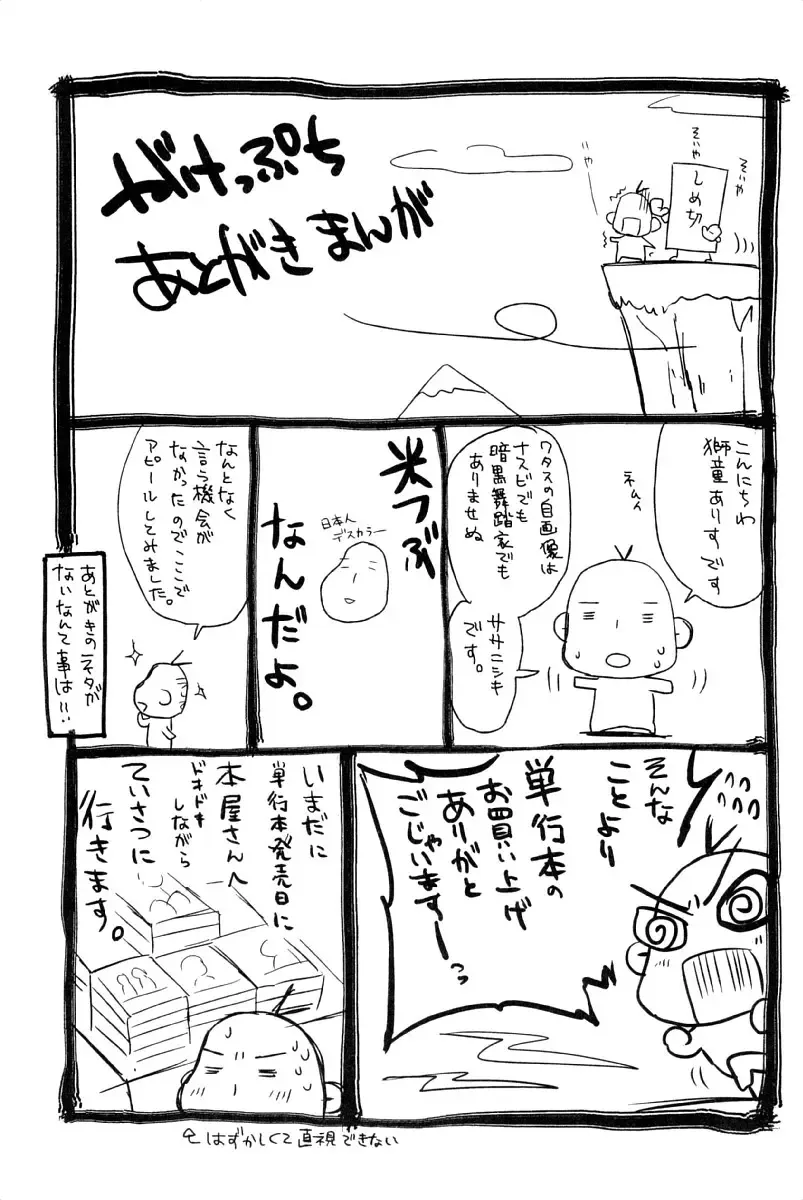 がけっぷち
あとがきまんが
そいや
そいや
しめ切
いや
こんにちわ
獅童ありすです
ネムィ
ワタスの自画像は
ナスビでも
暗黒舞踏家でも
ありませぬ
ササニシキ
です。
米つぶ
なんだよ。
日本人
デスカラー
なんとなく
言う機会が
なかったのでここで
アピールしてみました。
あとがきのネタが
ないなんて事は!!
そんな
ことより
単行本の
お買い上げ
ありがと
ごじゃい
ますーっっ
いまだに
単行本発売日に
本屋さんへ
ドキドキ
しながら
ていさつに
行きます。
はずかしくて直視できない